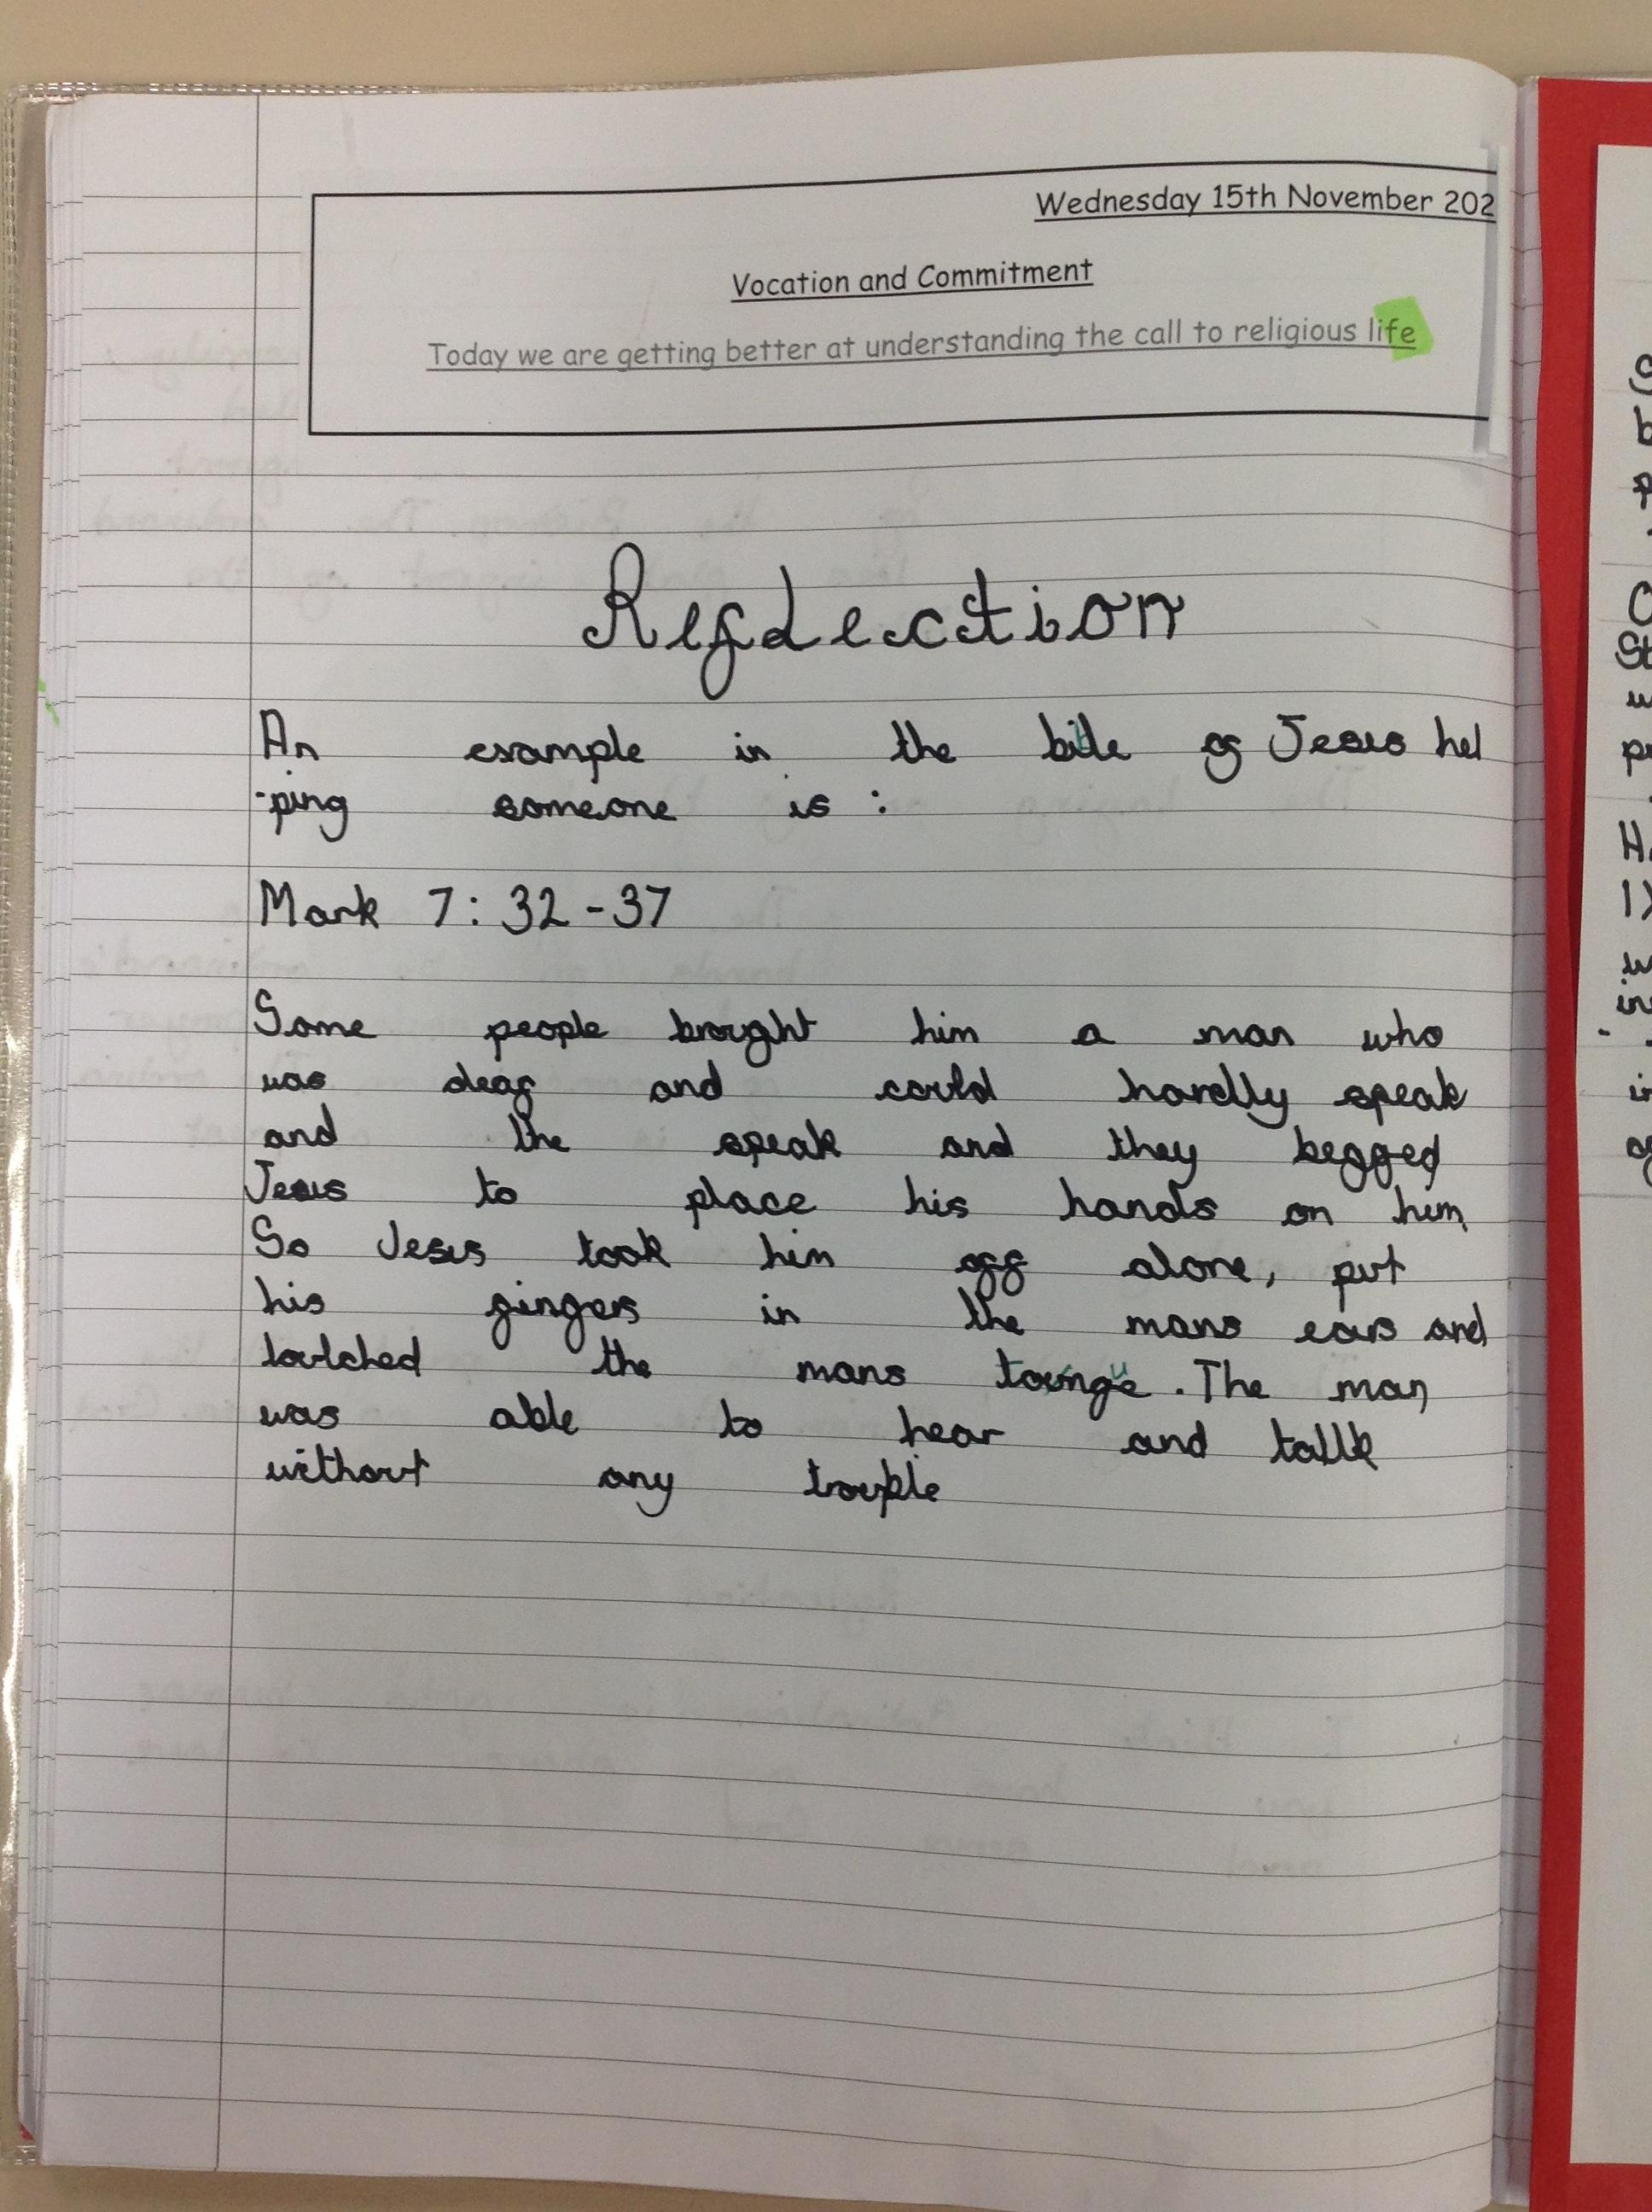 Wednesday 15th November 202
Vocation and Commitment
Today we are getting better at understanding the call to religious life
Reflection
An example in the bible of Jesus hel
-ping someone is :
Mark 7: 32 - 37
Some people brought him a man who
was deaf and could hardly speak
and the speak and they begged
Jesus to place his hands on him
So Jesus took him off alone, put
his fingers in the mans ears and
toutched the mans toungue. The man
was able to hear and tallk
without any trouble